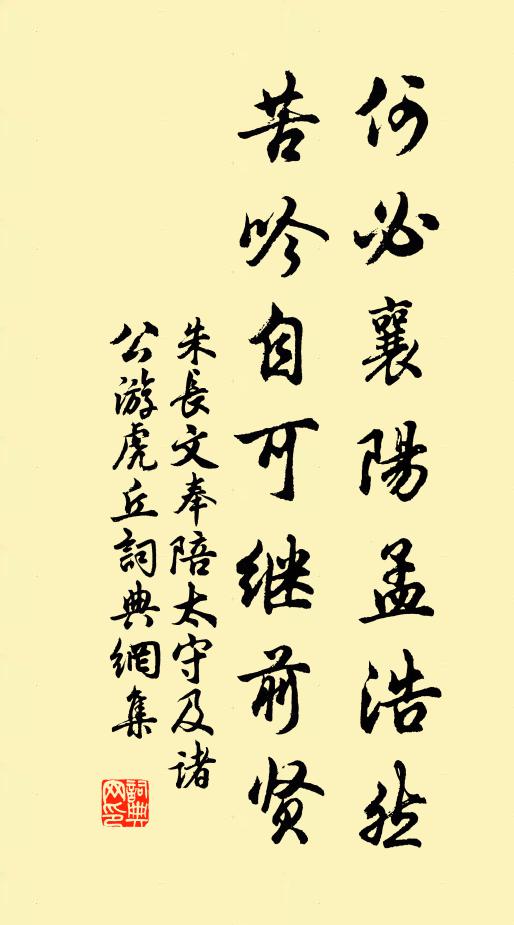 何必襄陽孟浩然
苦吟自可继前贤
朱長文奉陪太守及诸
公游虎丘詞典網集
詞典网印